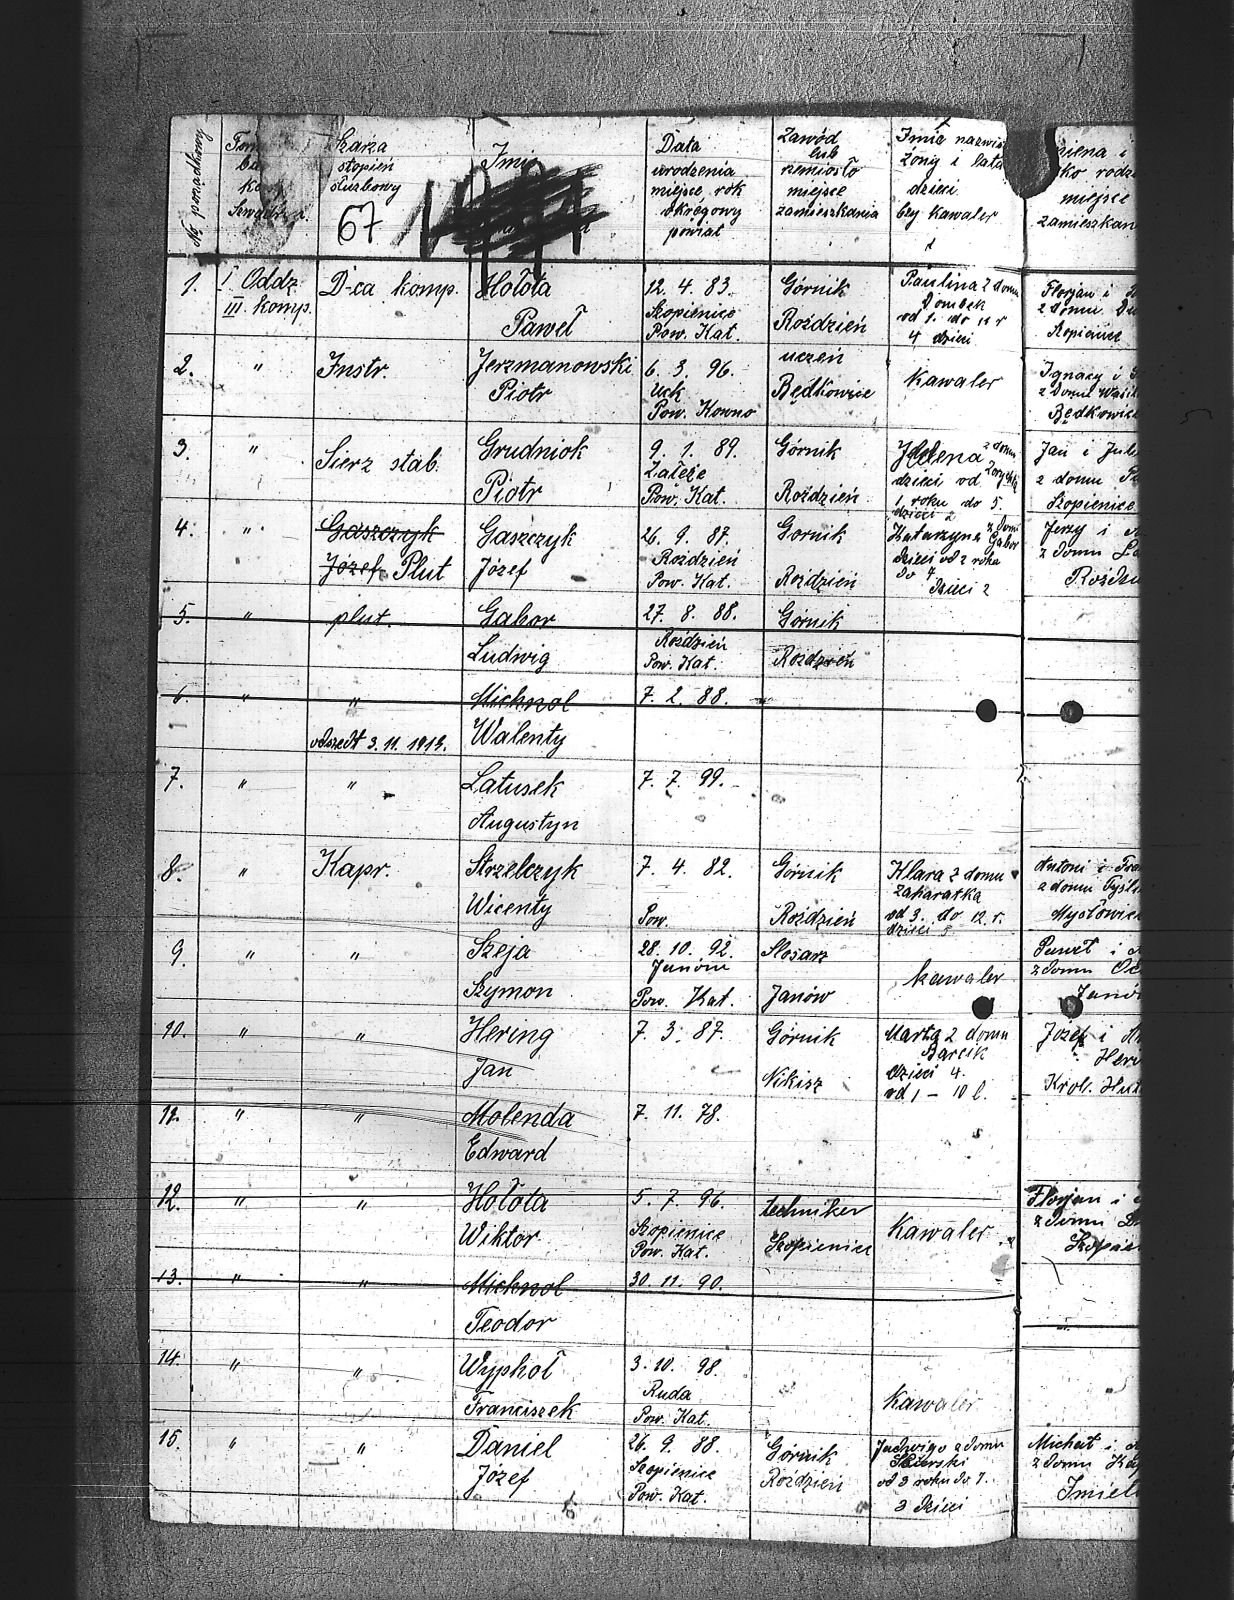 № porządkowy
Szarża
stopień
służbowy
67
Imię
Data
urodzenia
miejsce, rok
okręgowy
powiat
Zawód
lub
rzemiosło
miejsce
zamieszkania
Imię nazwis
żony i lata
dzieci
czy Kawaler
miena i
sko rodz
miejsce
zamieszkan
1. I Oddz. D-ca komp. Hołota 12. 4. 83. Górnik Paulina z domu
III. komp. Paweł Szopienice Roździen Dombek
Pow. Kat. od 1. do 11 r
4 dzieci
Florjan i
z domu
Szopienice
2. " Instr. Jerzmanowski 6. 3. 96. uczeń Kawaler Ignacy i
Piotr Uck Będkowice z domu
Pow. Kowno Będkowice
3. " Sierż stab. Grudniok 9. 1. 89. Górnik Helena z domu Jan i Jul
Piotr Załęże Roździeń dzieci od z domu
Pow. Kat. 1 roku do 5. Szopienice
dzieci 2
4. " Gaszczyk Gaszczyk 26. 9. 87. Gornik Katarzyna z domu Gabor Jerzy i
Józef Plut Józef Roździeń Roździeń dzieci od 2 roku z domu
Pow. Kat. do 7 Roździ
dzieci 2
5. " plut. Gabor 27. 8. 88. Górnik
Ludwig Roździeń Roździeń
Pow. Kat.
6. " " Michnol 7. 2. 88.
odszedł 3. 11. 1919. Walenty
7. " " Latusek 7. 7. 99.
Augustyn
8. " Kapr. Strzelczyk 7. 4. 82. Górnik Klara z domu Antoni i Fra
Wicenty Pow. Roździeń Zaharatka z domu
od 3. do 12. r. Mysłowice
dzieci 5
9. " " Szeja 28. 10. 92. Slosarz Kawaler Paweł i
Szymon Janów Janów z domu
Pow. Kat. Janó
10. " " Hering 7. 3. 87. Górnik Marta z domu Jozef i
Jan Nikisz Barcik Her
dzieci 4. Krol. Hut
od 1 - 10 l.
11. " " Molenda 7. 11. 78.
Edward
12. " " Hołota 5. 7. 96. techniker Kawaler Florjan i
Wiktor Szopienice Szopienice z domu
Pow. Kat. Szopie
13. " " Michnol 30. 11. 90.
Teodor
14. " " Wyphoł 3. 10. 98. Kawaler
Franciszek Ruda
Pow. Kat.
15. " " Daniel 26. 9. 88. Górnik Jadwiga z domu Michał i
Józef Szopienice Roździeń z domu
Pow. Kat. od 3 roku do 7. Imiel
3 dzieci